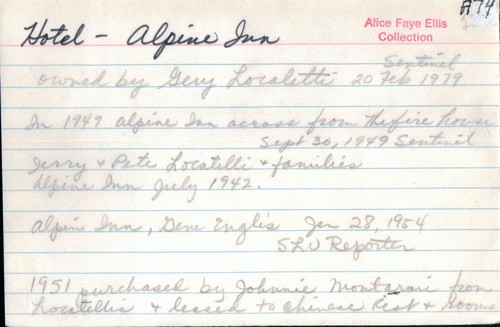 A74
Alice Faye Ellis
Collection
Hotel - Alpine Inn
Sentinel
owned by Gery Localetti 20 Feb 1979
In 1949 Alpine Inn across from the fire house
Sept 30, 1949 Sentinel
Jerry & Pete Locatelli & families
Alpine Inn July 1942.
Alpin Inn, Gene Englis Jan 28, 1954
SLV Reporter
1951 purchased by Johnnie from
Locatellis & leased to Chinese Rest & rooms